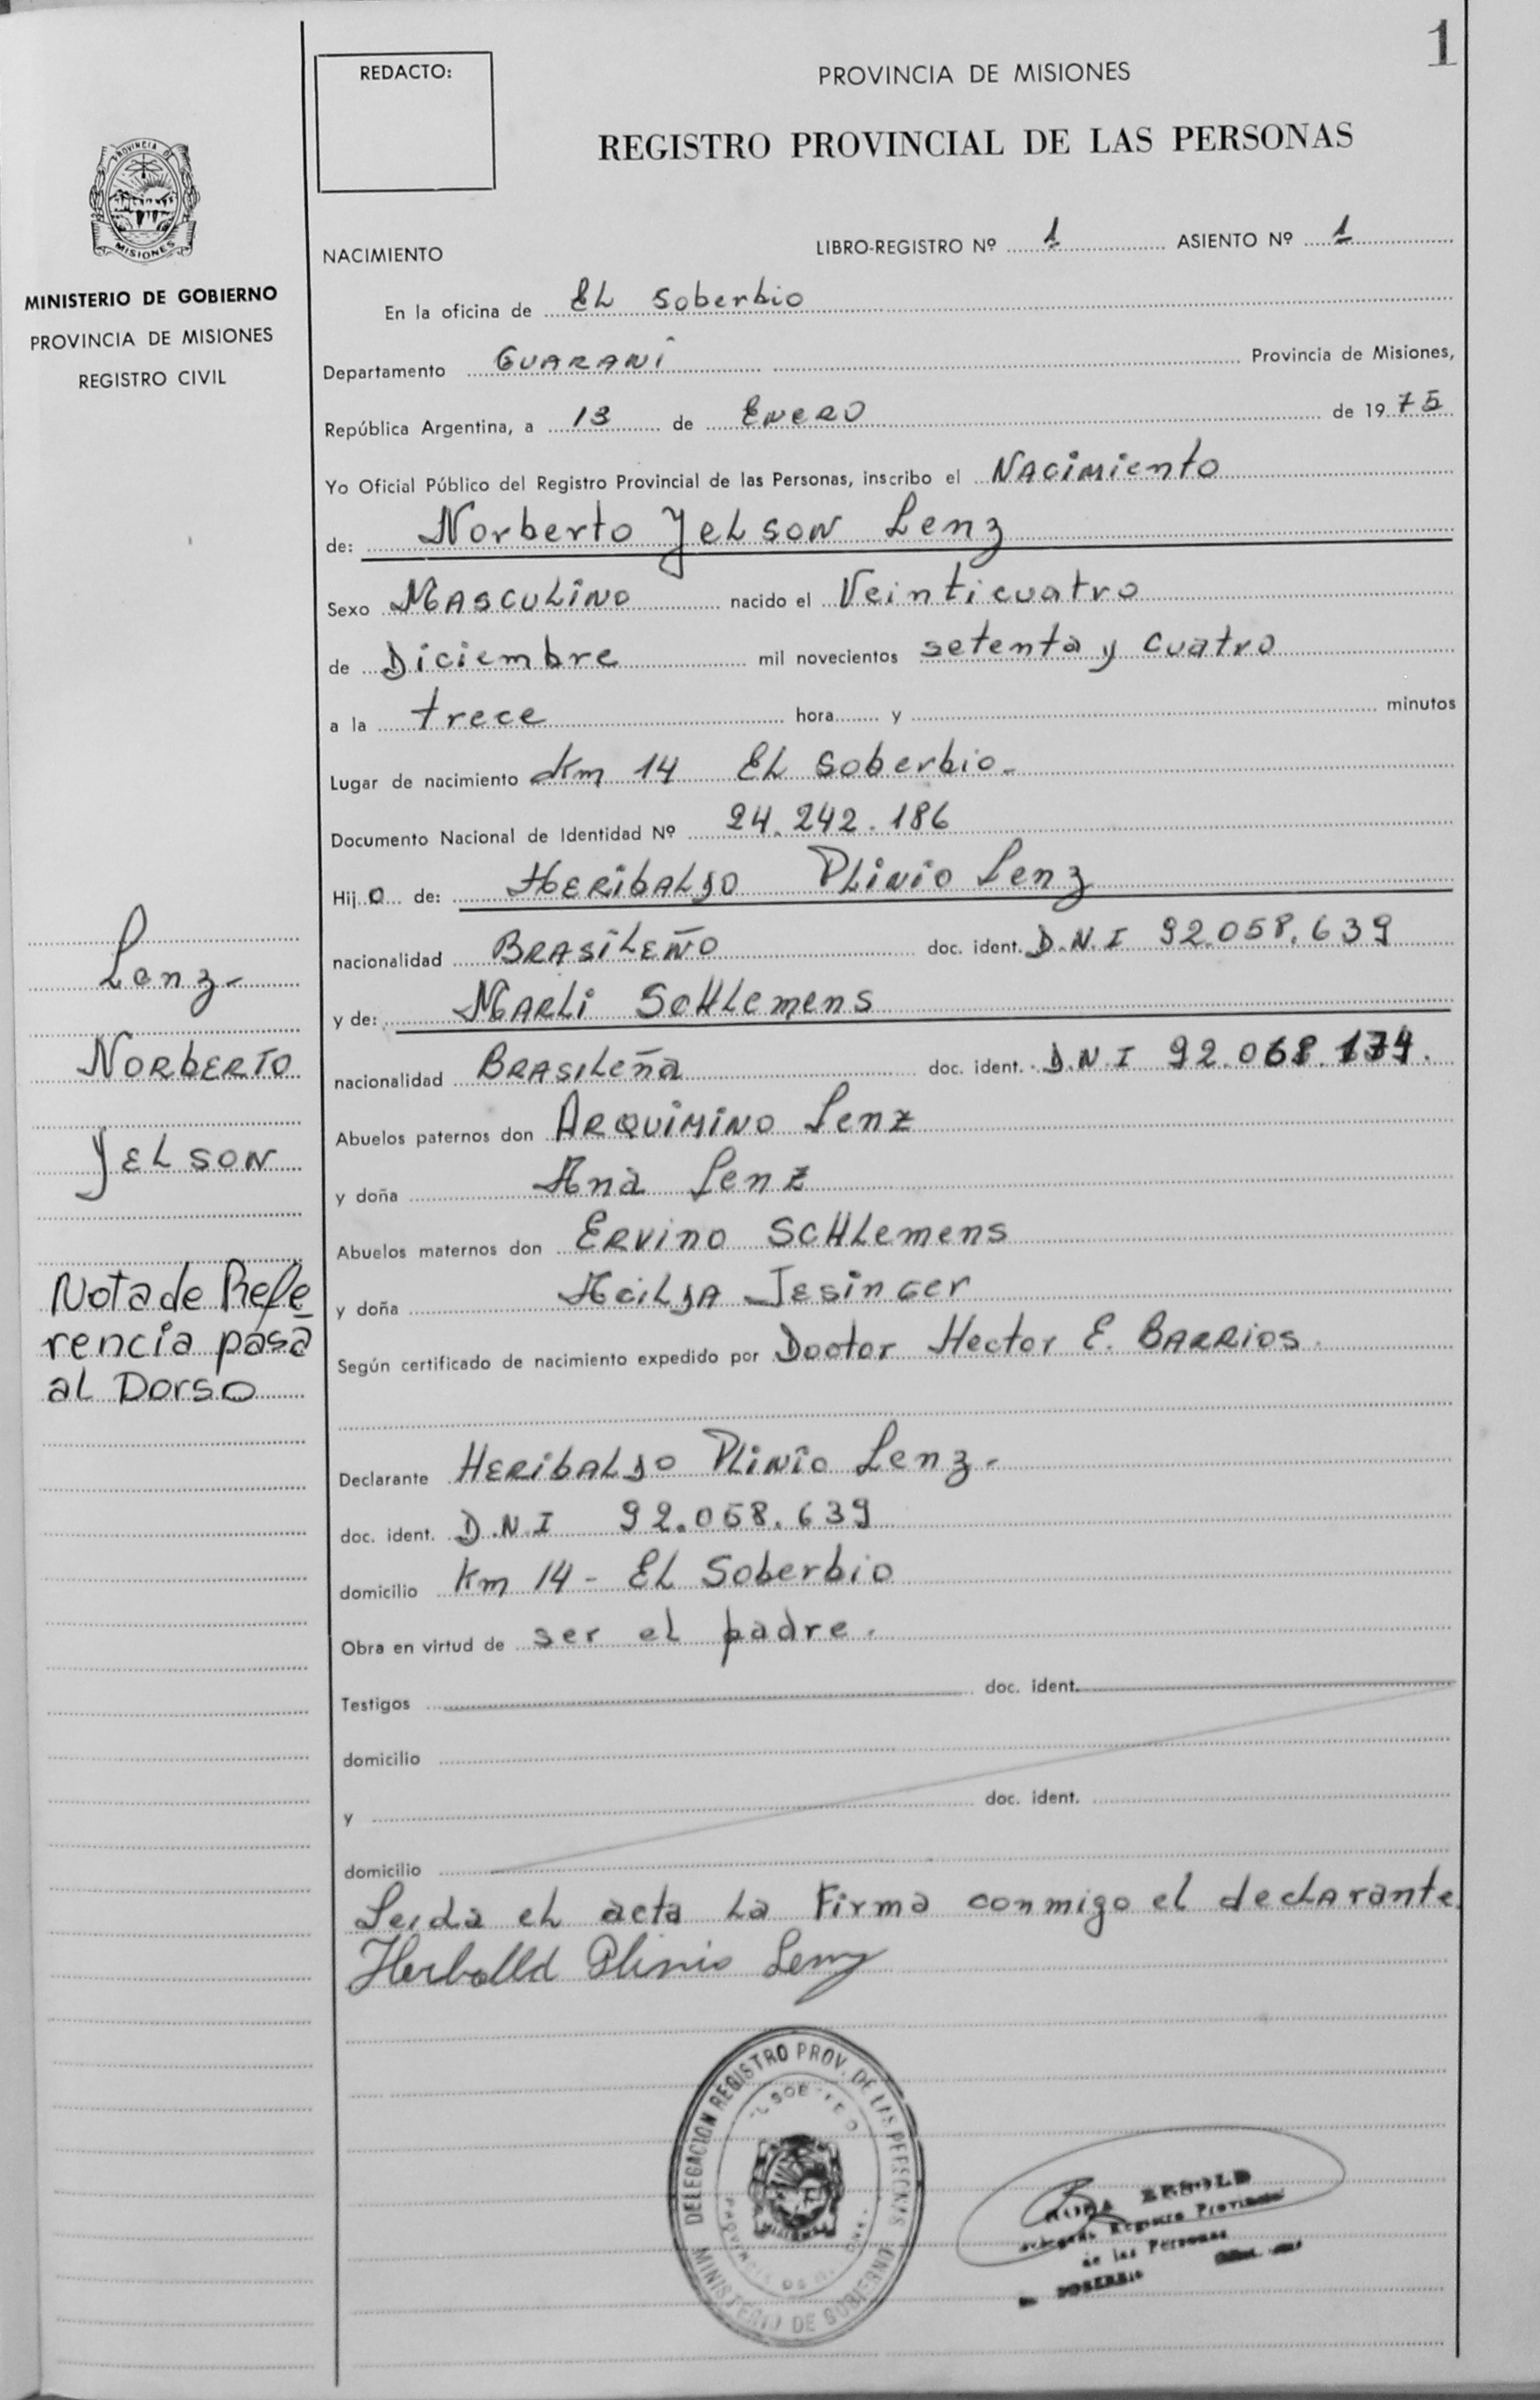 1
REDACTO:
PROVINCIA DE MISIONES
REGISTRO PROVINCIAL DE LAS PERSONAS
PROVINCIA DE
MISIONES
MINISTERIO DE GOBIERNO
PROVINCIA DE MISIONES
REGISTRO CIVIL
NACIMIENTO LIBRO-REGISTRO Nº 1 ASIENTO Nº 1
En la oficina de EL Soberbio
Departamento GUARANí Provincia de Misiones,
República Argentina, a 13 de Enero de 1975
Yo Oficial Público del Registro Provincial de las Personas, inscribo el Nacimiento
de: Norberto Yelson Lenz
Sexo Masculino nacido el Veinticuatro
de Diciembre mil novecientos setenta y cuatro
a la trece hora y minutos
Lugar de nacimiento Km 14 EL Soberbio-
Documento Nacional de Identidad Nº 24.242.186
Hijo de: Heribaldo Plinio Lenz
nacionalidad Brasileño doc. ident. D.N.I 92.058.639
y de: Marli Schlemens
nacionalidad Brasileña doc. ident. D.N.I 92.068.174.
Abuelos paternos don Arquimino Lenz
y doña Ana Lenz
Abuelos maternos don Ervino Schlemens
y doña Hilda Jesinger
Según certificado de nacimiento expedido por Doctor Hector E. Barrios.
Declarante Heribaldo Plinio Lenz-
doc. ident. D.N.I 92.058.639
domicilio Km 14 - EL Soberbio
Obra en virtud de ser el padre.
Testigos doc. ident.
domicilio
y doc. ident.
domicilio
Leida el acta la Firma conmigo el declarante.
Plinio Lenz
Lenz-
Norberto
Yelson
Nota de Refe
rencia pasa
al Dorso
DELEGACION REGISTRO PROV. DE LAS PERSONAS
MINISTERIO DE GOBIERNO
Registro Provincial
de las Personas
SOBERBIO